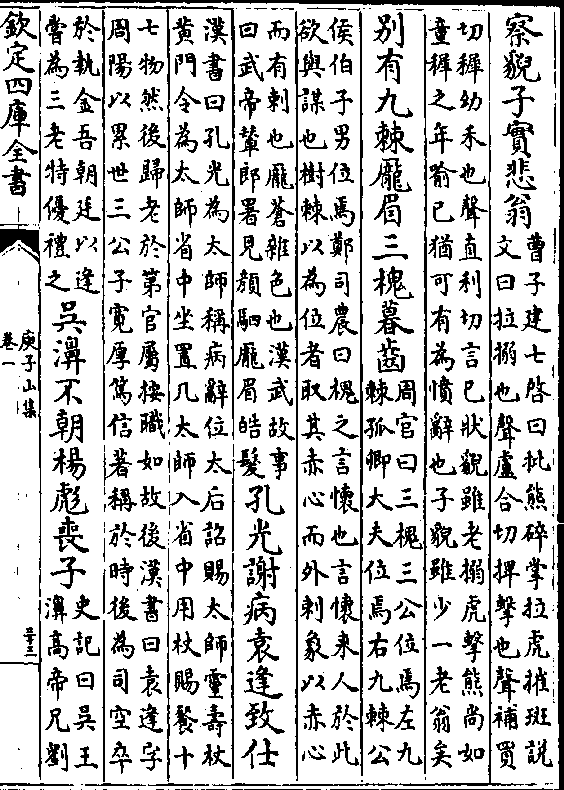 察貌子實悲翁
曹子建七啓曰批熊碎掌拉虎摧斑説
文曰拉搦也聲盧合切捭擊也聲補買
切穉幼禾也聲直利切言已狀觀雖老搦虎擊熊尚如
童穉之年喻已猶可有為憤辭也子貌雖少一老翁矣
別有九棘龎眉三槐暮齒
周官曰三槐三公位焉左九
棘孤卿大夫位焉右九棘公
侯伯子男位焉鄭司農曰槐之言懷也言懷来人於此
欲與謀也樹棘以為位者取其赤心而外刺象以赤心
而有刺也龎蒼雜色也漢武故事
曰武帝輦郎署見顔駟龎眉皓髮
孔光謝病袁逢致仕
漢書曰孔光為太師稱病辭位太后詔賜太師靈壽杖
黄門令為太師省中坐置几太師入省中用杖賜餐十
七物然後歸老於第官屬按職如故後漢書曰袁逢字
周陽以累世三公子寛厚篤信著稱於時後為司空卒
於執金吾朝廷以逢
嘗為三老特優禮之
吳濞不朝楊彪喪子
史記曰吳王
濞高帝兄劉
欽定四庫全書
庾子山集
卷一